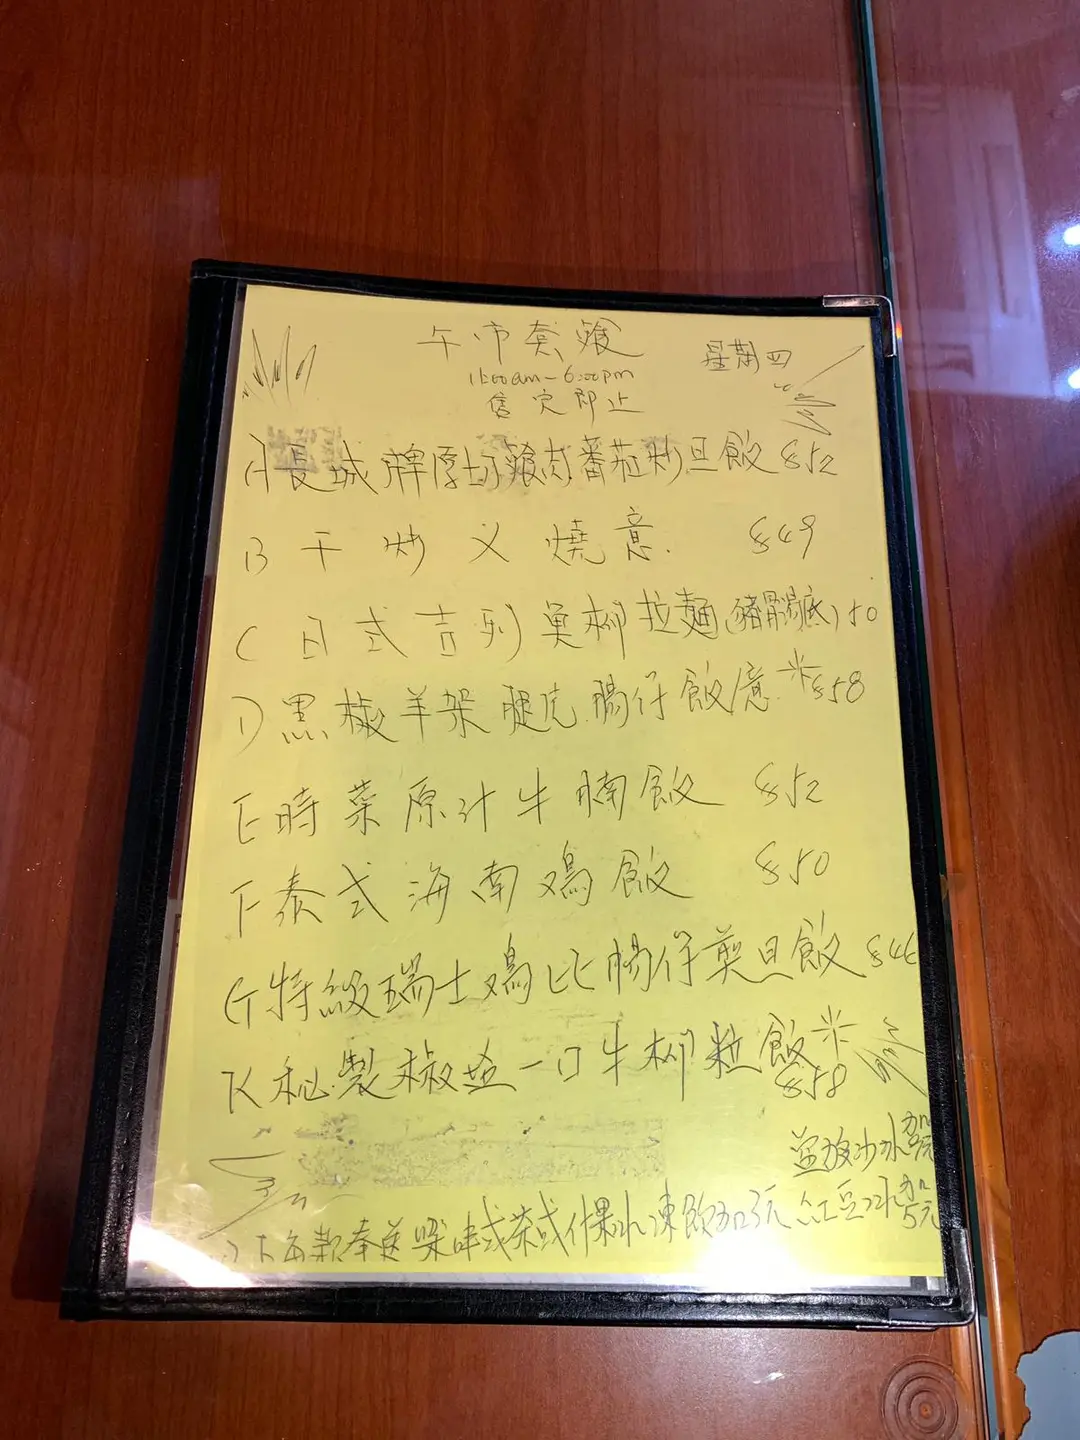 午市套餐
星期四
11:00am-6:00pm
售完即止
A 長城牌厚切餐肉番茄炒旦飯 $52
B 干炒义燒意 $49
C 日式吉列魚柳拉麵(豬骨湯底) 50
D 黑椒羊架腿 腸仔飯意 * $58
E 時菜原汁牛腩飯 $52
F 泰式海南鸡飯 $50
G 特級瑞士鸡比腸仔煎旦飯 $46
K 秘製椒盐一口牛柳粒飯 *
$58
沙冰加
元
以下各款奉送 啡或茶或什果冰凍飲加3元 红豆冰加5元